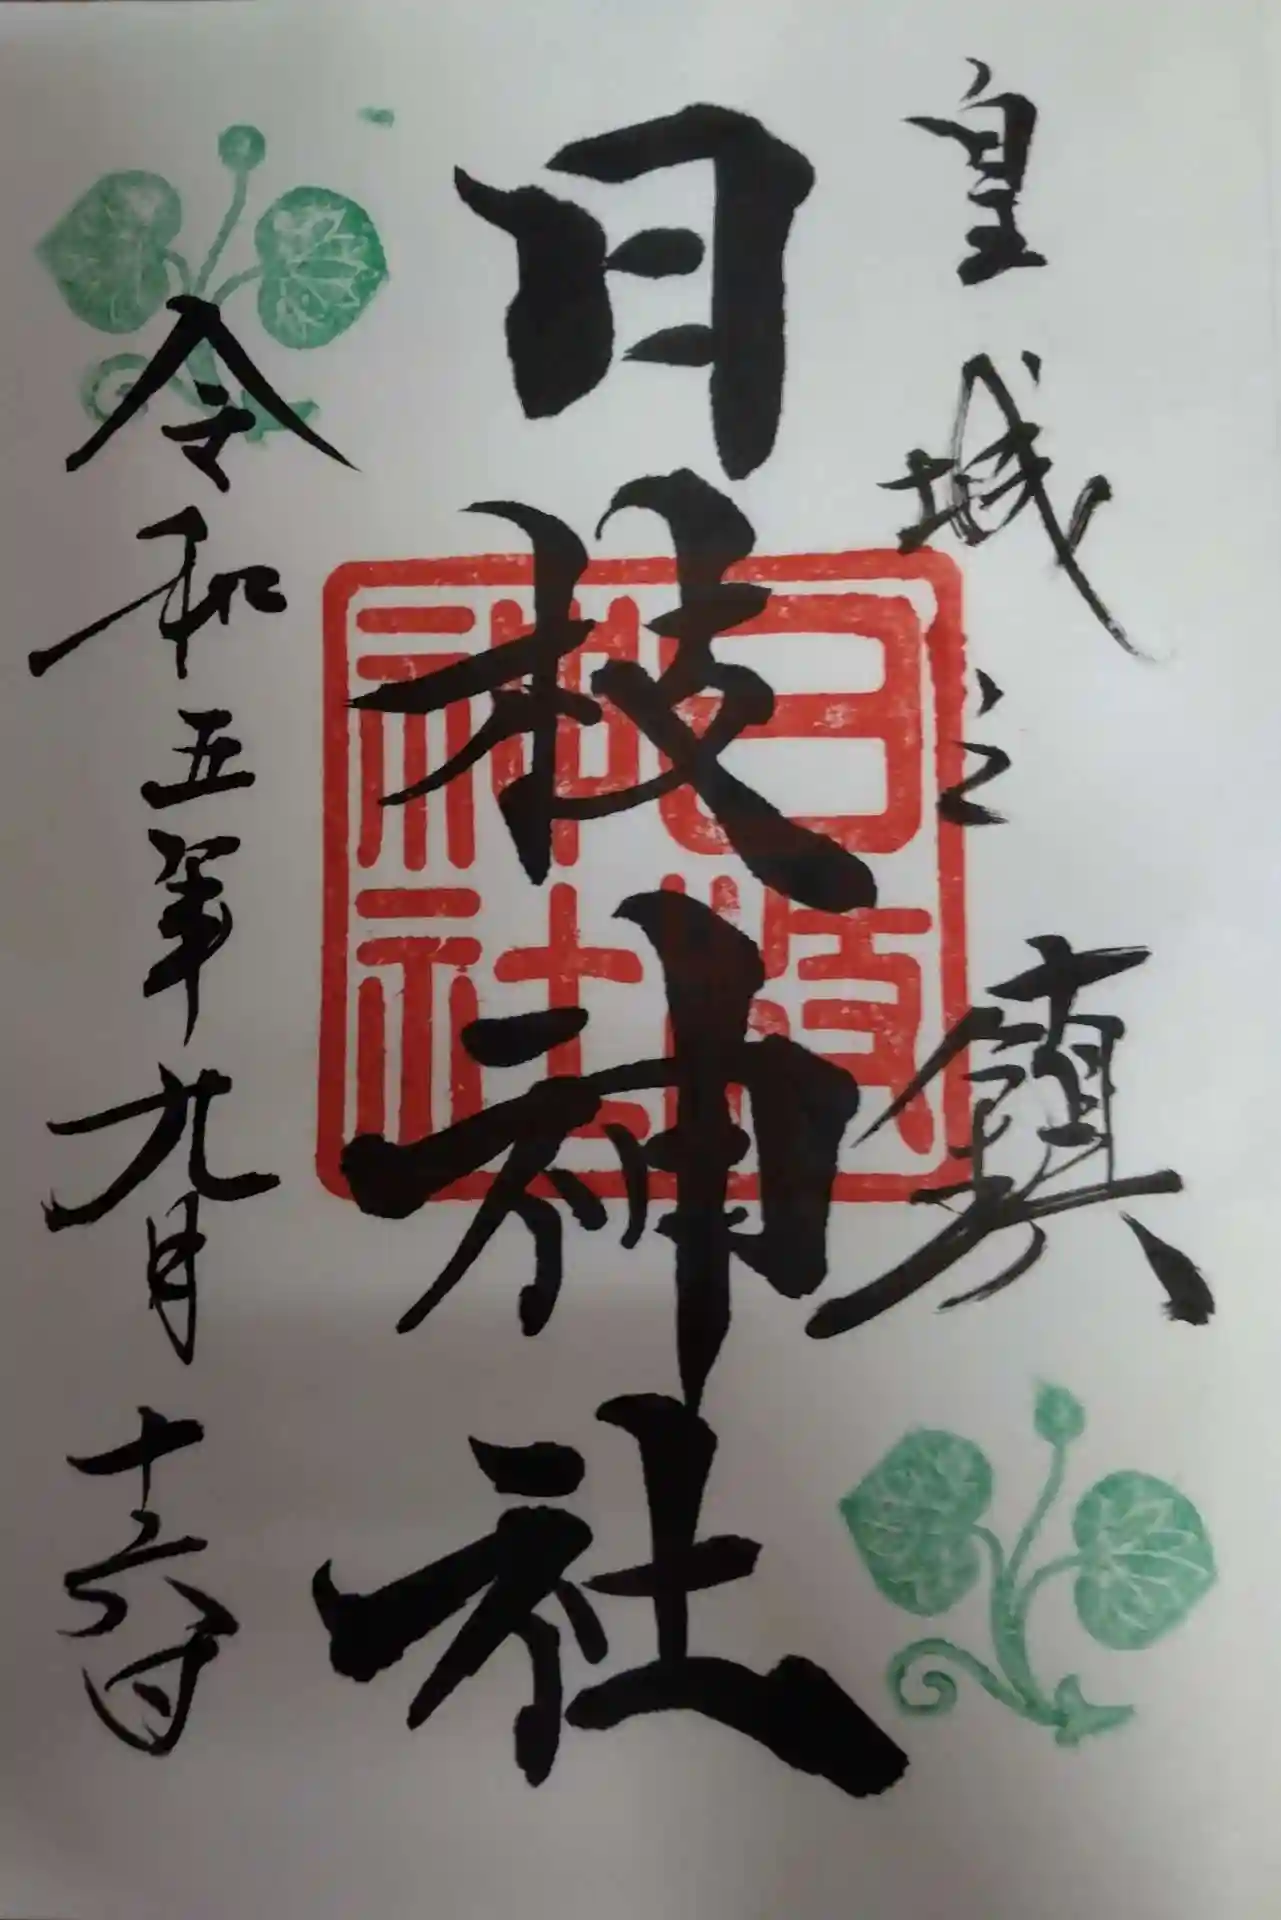 皇城之鎮
日枝神社
日枝神社
令和五年九月十六日